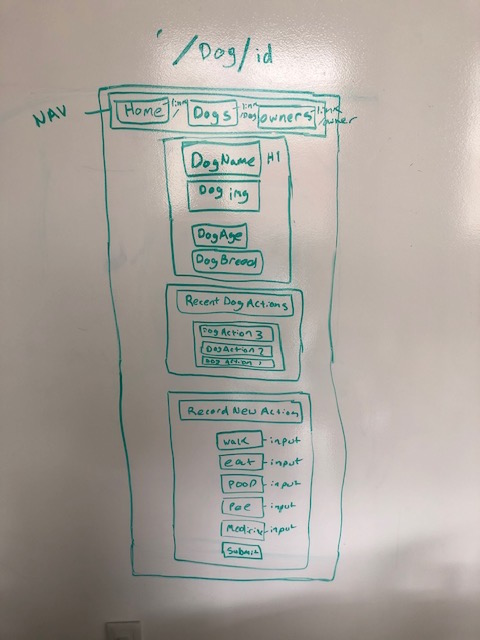 /Dog/id
NAV
Home link / Dogs link /Dog owners link /owner
DogName H1
Dog img
DogAge
DogBreed
Recent Dog Actions
Dog Action 3
Dog Action 2
Dog Action 1
Record New Action
walk - input
eat - input
poop - input
Pee - input
Medicine - input
submit